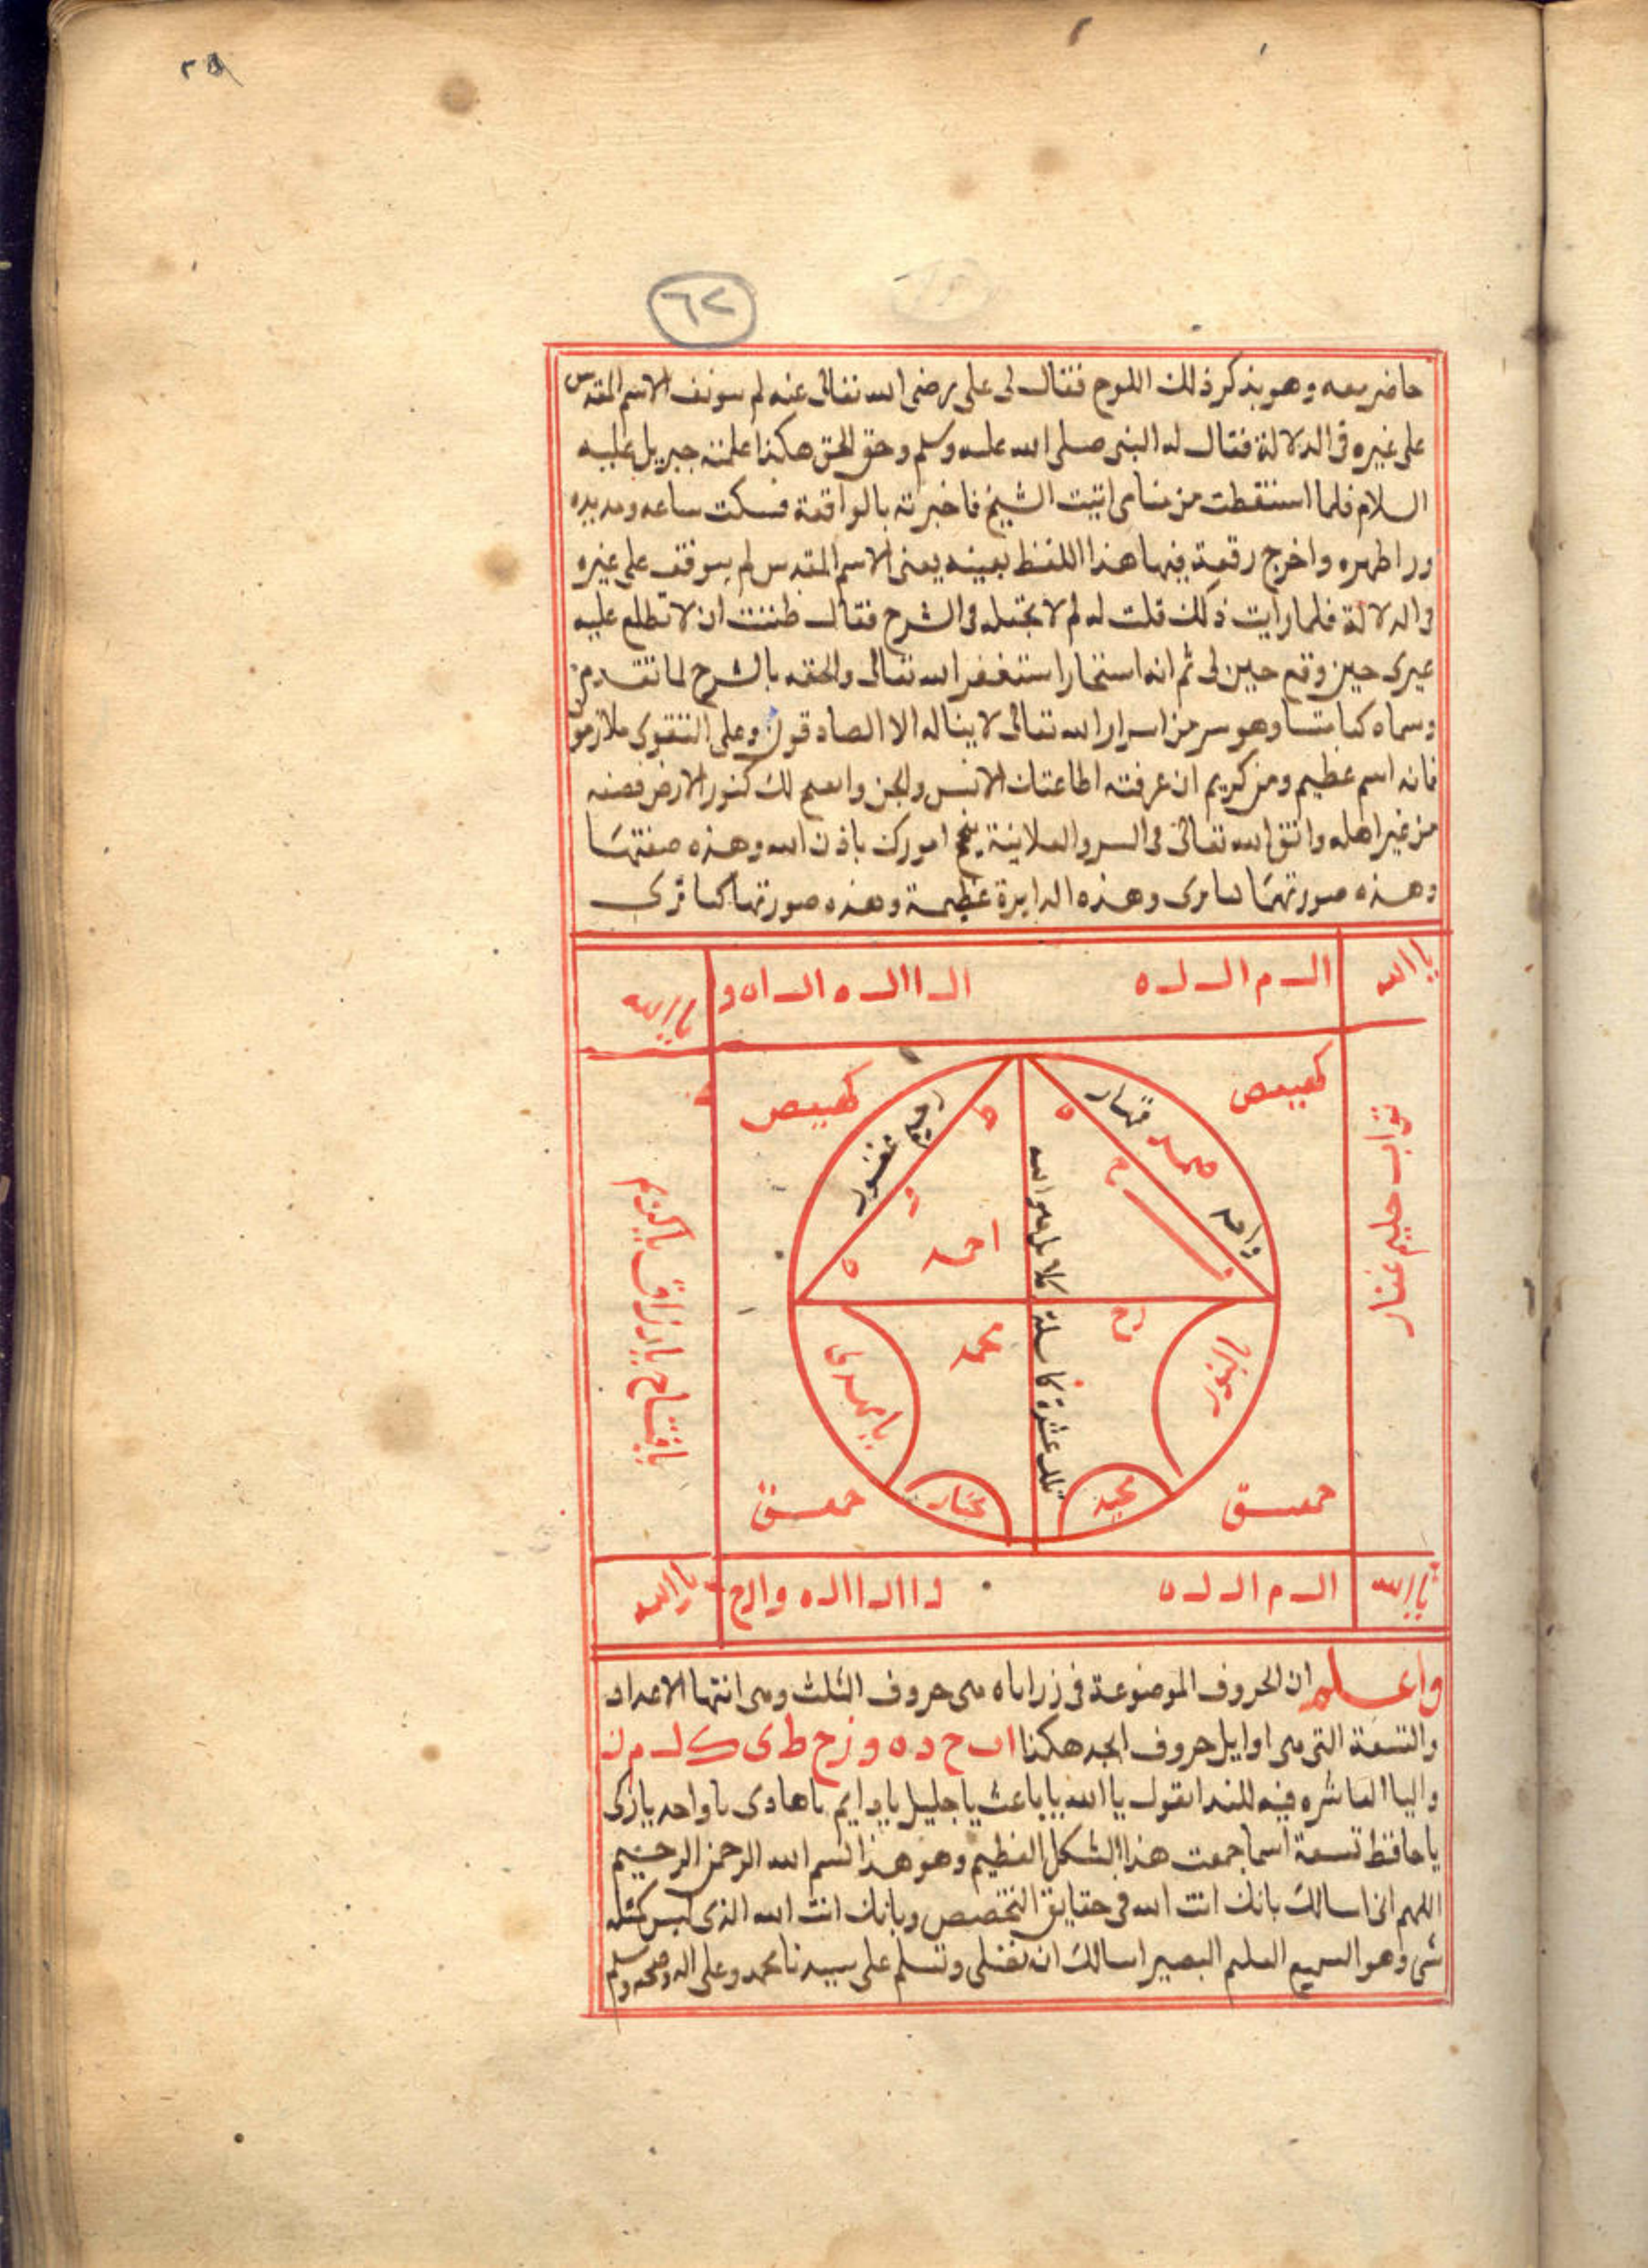 ٦٢
حاضر معه وهو يذكر ذلك اللوح فقال لى على رضى الله تعالى عنه لم سوىف الاسم المقدس
على غيره فى الدلالة فقال له النبى صلى الله عليه وسلم وحق الحق هكذا علمنه جبريل عليه
السلام فلما استنقظت من منامى اتيت الشيخ فاخبرته بالواقعة فسكت ساعه ومد يده
ورا ظهره واخرج رقعة فيها هذا اللفظ بعينه يعنى الاسم المقدس لم يتوقف على غيره
فى الدلالة فلما رايت ذلك قلت له لم لا تجعله فى الشرح فقال ظننت ان لا تطلع عليه
غيرى حين وقع حين لى ثم انه استخار استغفر الله تعالى والحقه بالشرح لما تقدم من
وسماه كتابا وهو سر من اسرار الله تعالى لا يناله الا الصادقون وعلى التقوى ملازمون
فانه اسم عظيم ومن كريم ان عرفته اطاعتك الانس والجن وانفتح لك كنوز الارض فصنه
من غير اهله واتق الله تعالى فى السر والعلانية ينجح امورك باذن الله وهذه صفتها
وهذه صورتها كما ترى وهذه الدايرة عظيمة وهذه صورتها كما ترى
يا الله
الـ م الـ لـ ه
الـ ا الـ ه الـ اه و
يا الله
كهيعص
كهيعص
تواب حليم غفار
قهار
محمد
واحد
رؤف غفور
احمد
ه
ه
ح
تلك عشرة كاملة كلا بل هو الله
محمد
يا نور
يا مهدى
مجيد
يا فتاح يا رزاق يا كريم
حمعسق
حمعسق
يا الله
الـ م الـ لـ ه
يا الله
واعلم ان الحروف الموضوعة فى زراياه هى حروف الثلث وهى انتها الاعداد
والتسعة التى هى اوايل حروف ابجد هكذا ا ب ج د ه و ز ح ط ى ك لـ م ن
واليا العاشره فيه للندا نقول يا الله يا باعث يا جليل يا دايم يا هادى يا واحد يا زكى
يا حافظ تسعة اسما جمعت هذا الشكل العظيم وهو هذا بسم الله الرحمن الرحيم
اللهم انى اسالك بانك انت الله فى حقايق التخصص وبانك انت الله الذى ليس كمثله
شى وهو السميع العليم البصير اسالك ان تصلى وتسلم على سيدنا محمد وعلى اله وصحبه وسلم